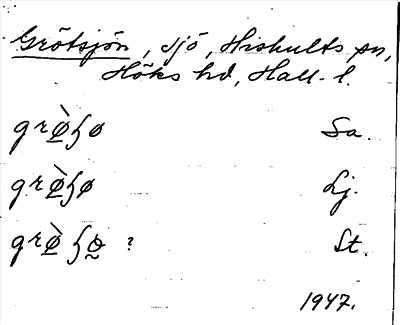 Grötsjön, sjö, Hishults sn,
Höks hd, Hall. l.
grø̀ɧø Sa.
grø̀ɧø Lj.
grø̀ɧø̰ ? St.
1947.